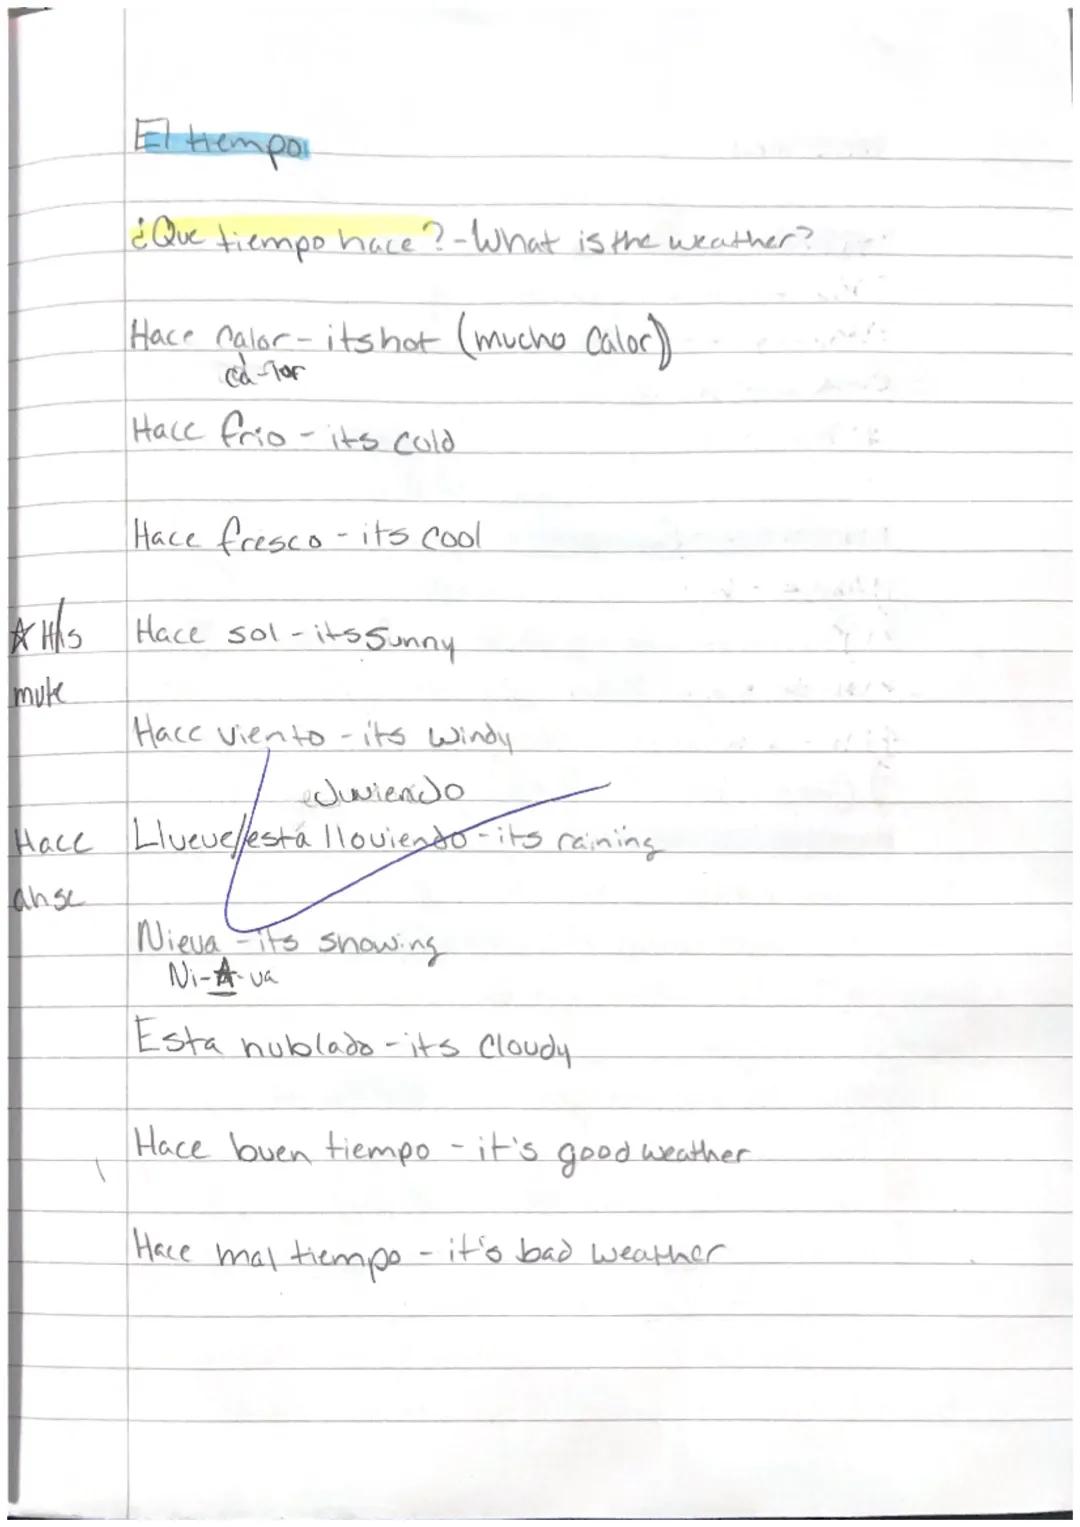 El tiempo
¿Que tiempo hace? - What is the weather?
Hace calor - its hot (mucho calor)
ca-lor
Hace frio - its cold
Hace fresco - its cool
☆ H is
mute
Hace sol - its sunny
Hace viento - its windy
Hace
ahse
Llueve/está lloviendo - its raining
Nieva - its snowing
Ni-A-va
Esta nublado - its cloudy
Hace buen tiempo - it's good weather
Hace mal tiempo - it's bad weather